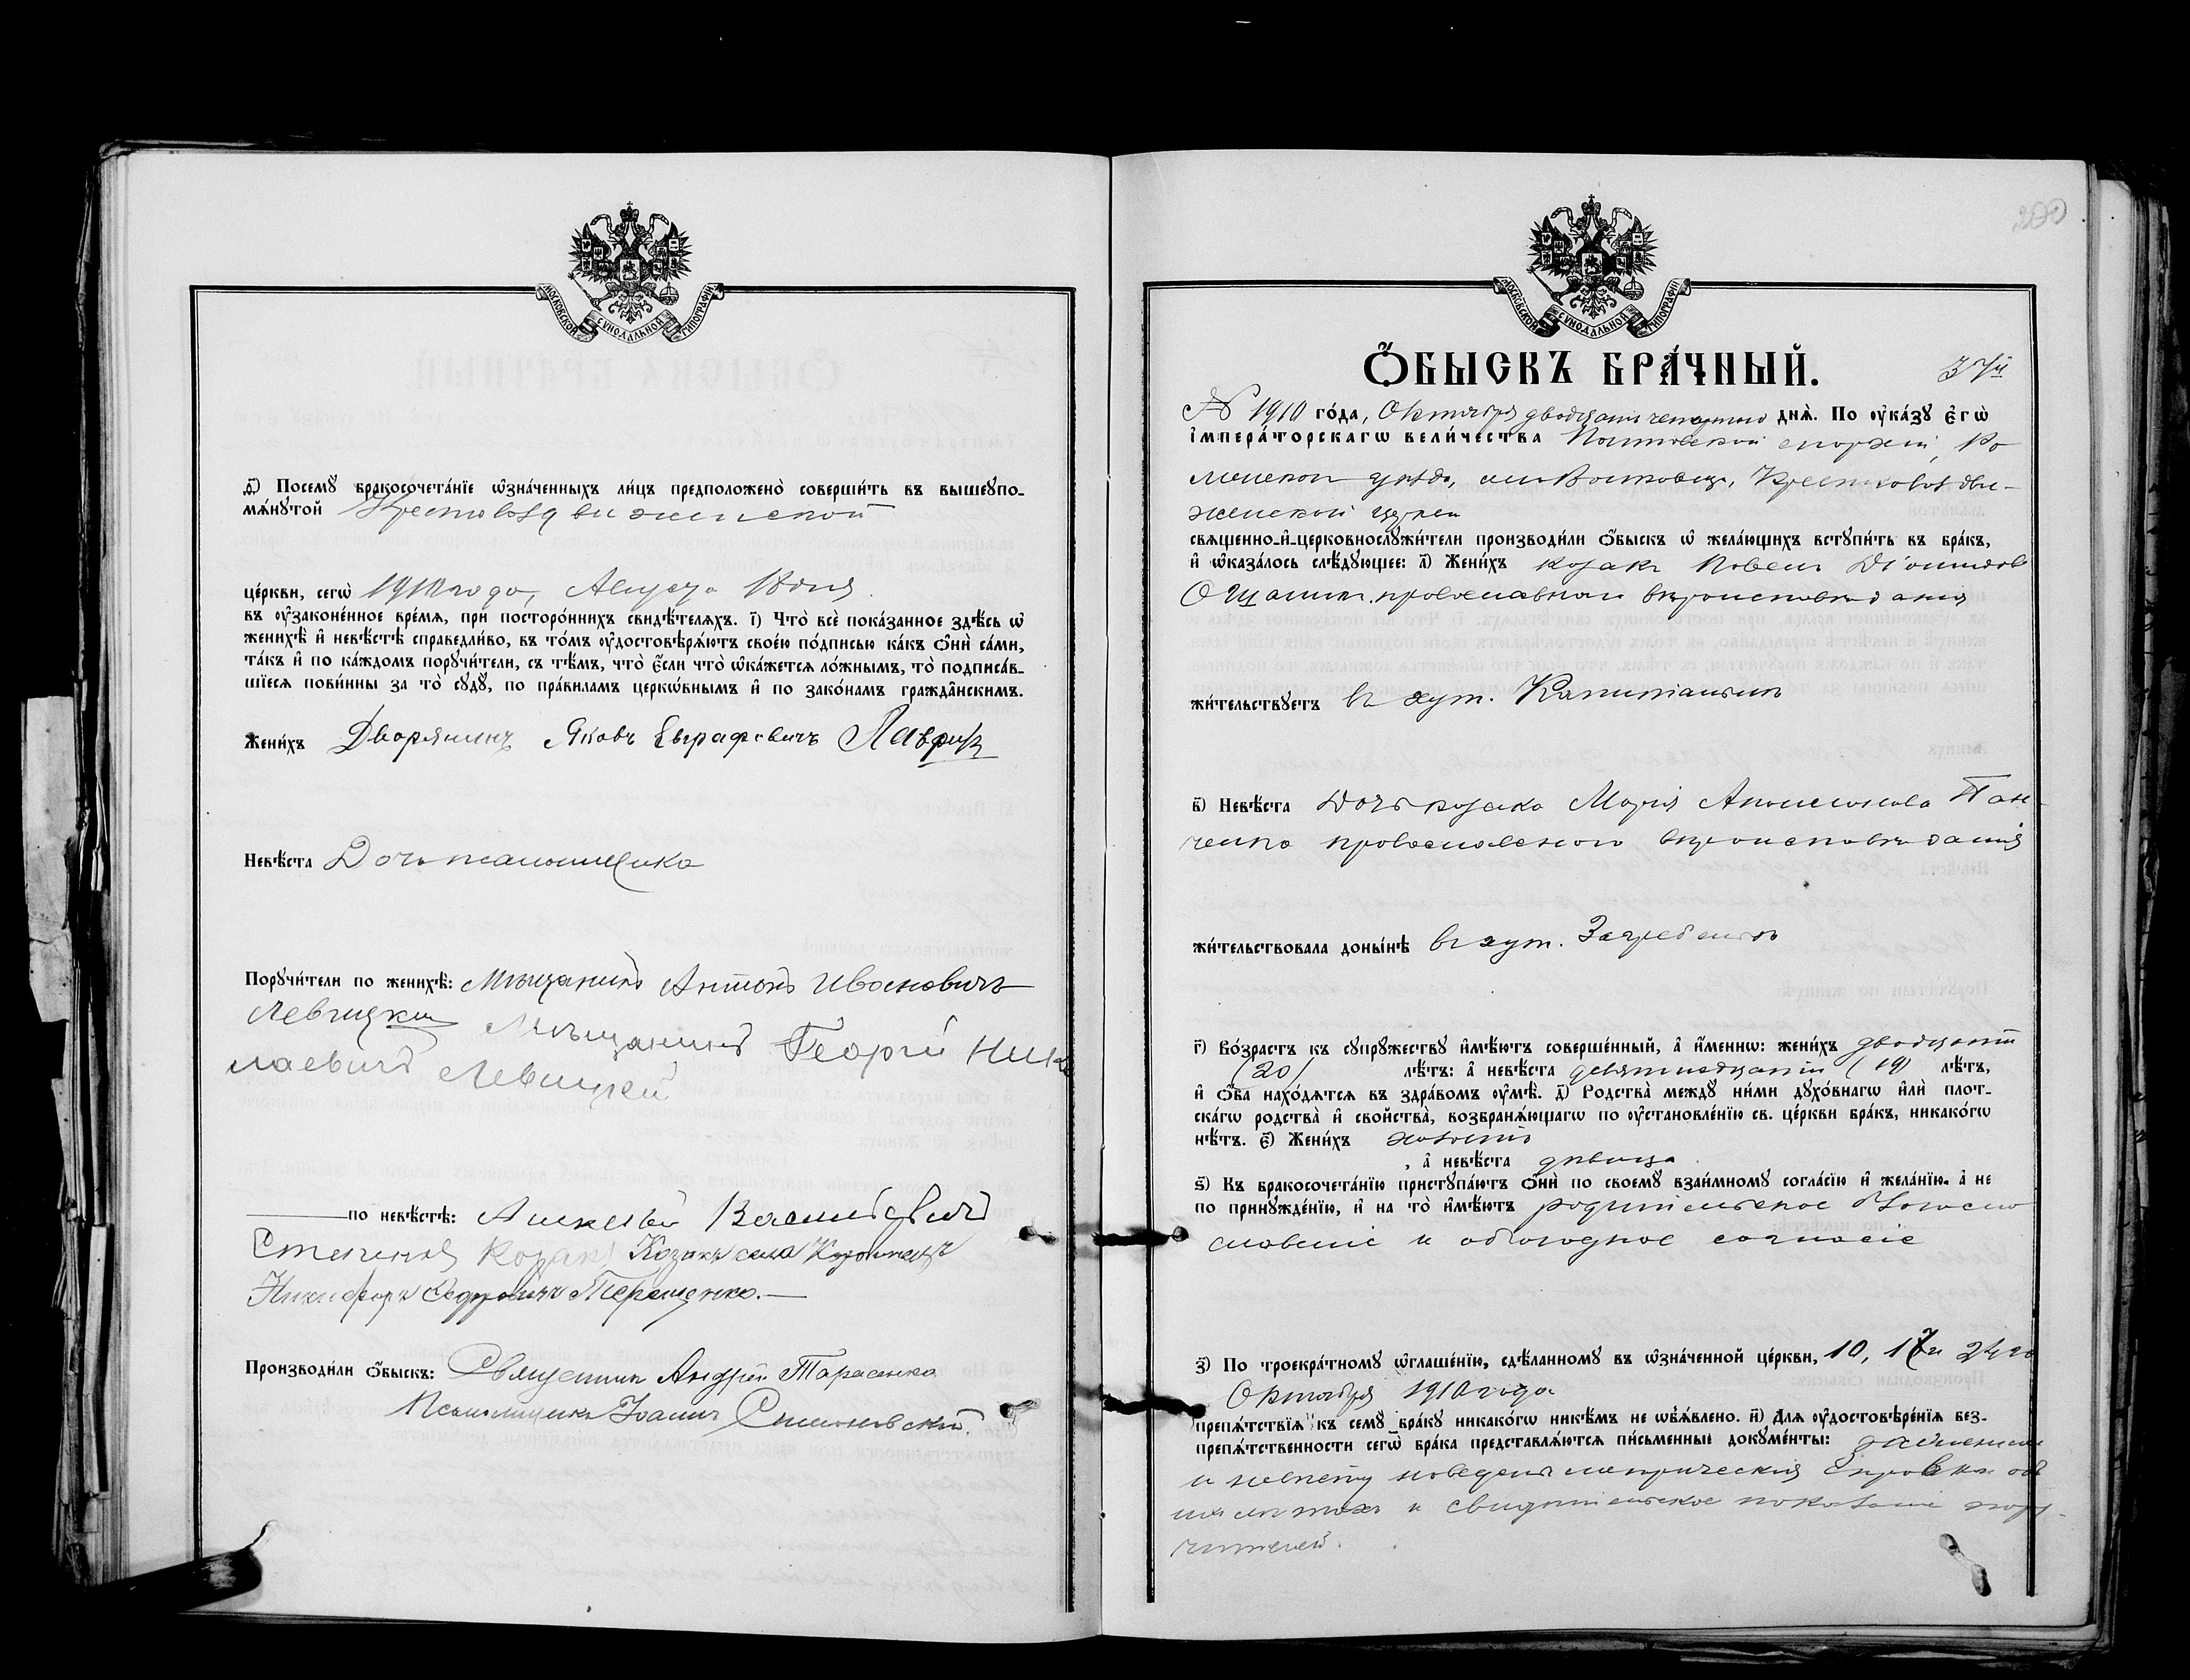 МОСКОВСКОЙ СУНОДАЛЬНОЙ ТИПОГРАФІИ
д҃) Посемꙋ бракосочета́нїе ѡ҆зна́ченныхъ ли́цъ предположено̀ соверши́ть въ вышеꙋпо-
мѧ́нꙋтой Крестовоздвиженской
це́ркви, сегѡ̀ 1910 года, Августа дня
въ ᲂу҆зако́не́нное вре́мѧ, при посторо́ннихъ свидѣ́телѧхъ. і҃) Что̀ всѐ пока́занное здѣ́сь ѡ҆
женихѣ̀ и҆ невѣ́стѣ справедли́во, въ то́мъ ᲂу҆достовѣрѧ́ютъ свое́ю по́дписью ка́къ ѻ҆нѝ са́ми,
та́къ и҆ по ка́ждомъ порꙋчи́тели, съ тѣ́мъ, что̀ є҆́сли что̀ ѡ҆ка́жется ло́жнымъ, то̀ подписа́в-
шїеся пови́нны за то̀ сꙋдꙋ̀, по пра́виламъ церкѡ́внымъ и҆ по зако́намъ гражда̑нскимъ.
Жени́хъ Дворянинъ Яковъ Евграфовичъ Лаврик
Невѣ́ста Дочь
Порꙋчи́тели по женихѣ̀: Мѣщанинъ Антонъ Ивановичъ
Левицкий Мѣщанинъ Георгій Нико
лаевичъ Левицкій
по невѣ́стѣ: Алексѣй Васильевичъ
Козакъ Козакъ села
Никифоръ Терещенко.
Производи́ли ѻ҆́быскъ: Священникъ Андрей Тарасенко
Псаломщикъ Іоаннъ Симоновский.
МОСКОВСКОЙ СУНОДАЛЬНОЙ ТИПОГРАФІИ
200
Ѻ҆́БЫСКЪ БРА́ЧНЫЙ.
37й
№ 1910 го́да, Октября двадцать четвертаго днѧ̀. По ᲂу҆ка́зꙋ є҆гѡ̀
і҆мпера́торскагѡ вели́чества Полтавской епархіи, Ро
менскаго уѣзда, Крестовоздви-
женской церкви
свѧщенно-и҆-церковнослꙋжи́тели производи́ли ѻ҆́быскъ ѡ҆ жела́ющихъ встꙋпи́ть въ бра́къ,
и҆ ѡ҆каза́лось слѣ́дꙋющее: а҃) Жени́хъ козакъ Павелъ
православнаго вѣроисповѣданія
жи́тельствꙋетъ въ хут.
в҃) Невѣ́ста Дочь козака Марія Пан-
ченко православнаго вѣроисповѣданія
жи́тельствовала доны́нѣ въ хут.
г҃) Во́зрастъ къ сꙋпрꙋ́жествꙋ и҆мѣ́ютъ соверше́нный, а҆ и҆́меннѡ: жени́хъ двадцать
(20) лѣ́тъ: а҆ невѣ́ста девятнадцать (19) лѣ́тъ,
и҆ ѻ҆́ба нахо́дятся въ здра́вомъ ᲂу҆мѣ̀. д҃) Родства̀ междꙋ ни́ми дꙋхо́внагѡ и҆лѝ плот-
ска́гѡ родства̀ и҆ свойства̀, возбранѧ́ющагѡ по ᲂу҆становле́нїю св. це́ркви бра́къ, никако́гѡ
нѣ́тъ. є҃) Жени́хъ холостъ
, а҆ невѣ́ста дѣвица
ѕ҃) Къ бракосочета́нїю пристꙋпа́ютъ ѻ҆нѝ по своемꙋ̀ взаи́мномꙋ согла́сїю и҆ жела́нїю, а҆ не
по принꙋжде́нїю, и҆ на то̀ и҆мѣ́ютъ родительское благосло
словеніе и обоюдное согласіе
з҃) По троекра́тномꙋ ѡ҆глаше́нїю, сдѣ́ланномꙋ въ ѡ҆зна́ченной це́ркви, 10, 17 и 24 го
Октября 1910 года
препѧ́тствїѧ къ семꙋ̀ бра́кꙋ никако́гѡ никѣ́мъ не ѡ҆б̾ѧ́влено. и҃) Длѧ ᲂу҆достовѣре́нїѧ без-
препѧ́тственности сегѡ̀ бра́ка представлѧ́ются пи́сьменные докꙋме́нты: о женихѣ
и невѣстѣ метрическія справки объ
ихъ лѣтахъ и свидѣтельское показаніе пору-
чителей.